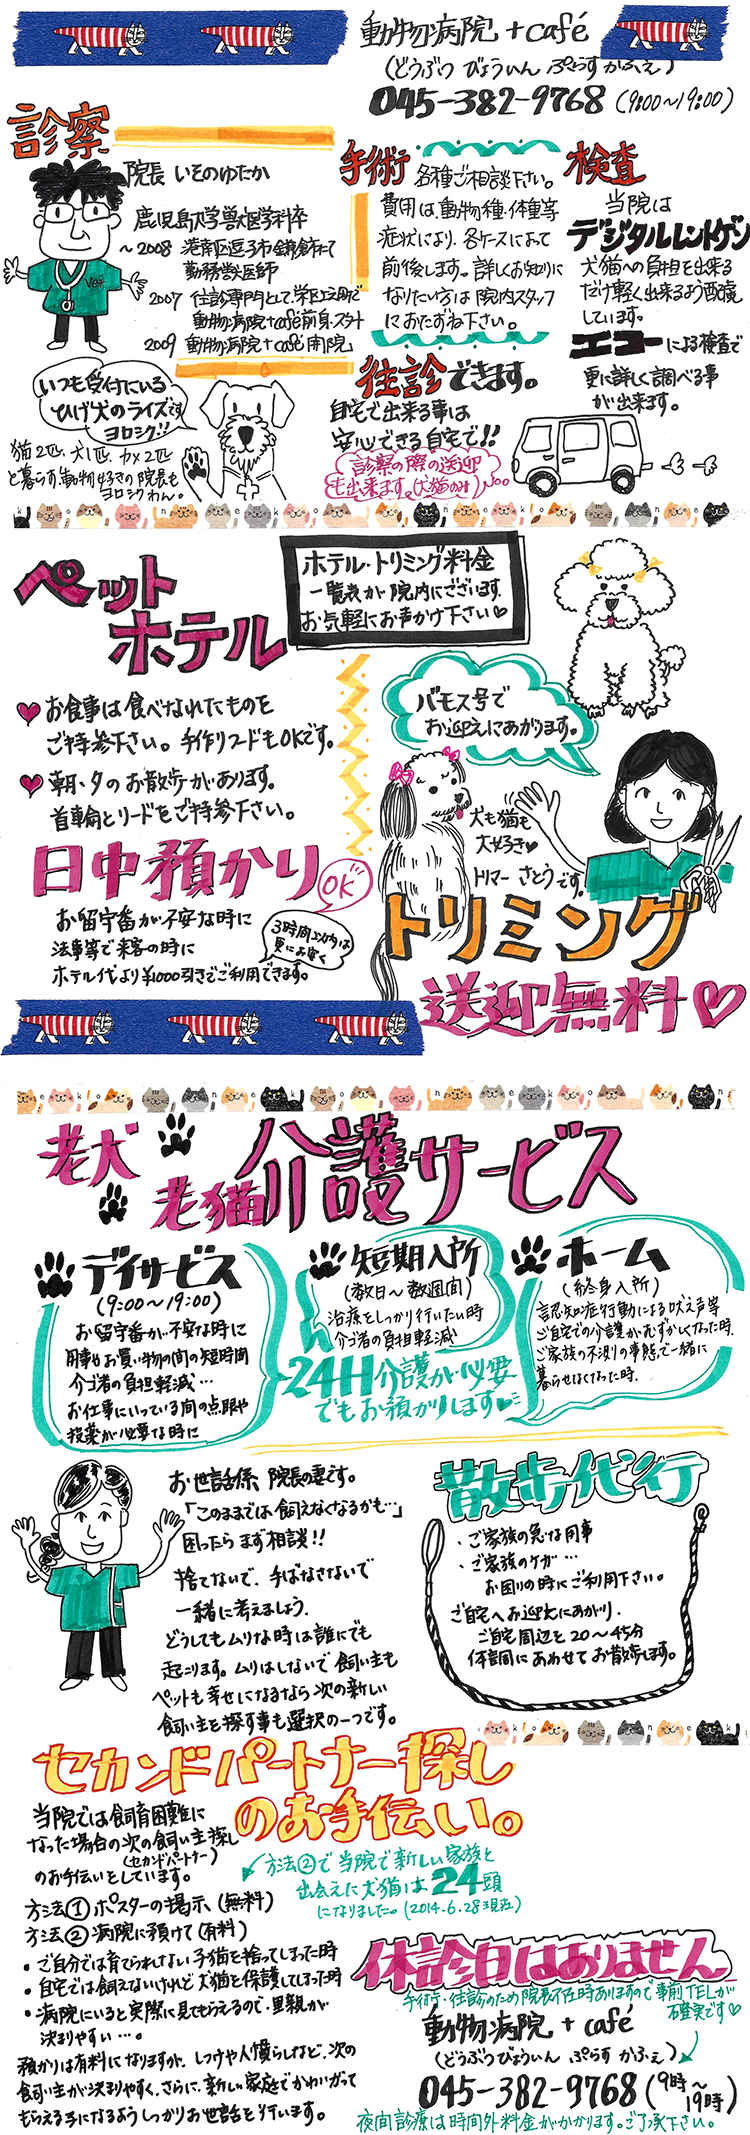 動物病院 +café
(どうぶつ びょういん ぷらす かふぇ)
045-382-9768 (9:00〜19:00)
診察
院長 いそのゆたか
鹿児島大学獣医学科卒
〜2008 港南区逗子市鎌倉市にて
勤務獣医師
2007 往診専門として、栄区上郷で
動物病院+café前身スタート
2009 動物病院+café開院
手術
各種ご相談下さい。
費用は、動物種・体重等
症状により、各ケースによって
前後します。詳しくお知りに
なりたい方は院内スタッフ
におたずね下さい。
検査
当院は
デジタルレントゲン
犬猫への負担を出来る
だけ軽く出来るよう配慮
しています。
エコーによる検査で
更に詳しく調べる事
が出来ます。
往診できます。
自宅で出来る事は
安心できる自宅で!!
診察の際の送迎
も出来ます。(犬猫のみ)
いつも受付にいる
ひげ犬のライズです
ヨロシク!!
猫2匹、犬1匹、カメ2匹
と暮らす、動物好きの院長も
ヨロシクわん。
ペット
ホテル
ホテル・トリミング料金
一覧表が院内にございます。
お気軽にお声かけ下さい♡
♥ お食事は食べなれたものを
ご持参下さい。手作りフードもOKです。
♥ 朝、夕のお散歩があります。
首輪とリードをご持参下さい。
バモス号で
お迎えにあがります。
犬も猫も
大好き♥
トリマー さとうです。
日中預かり
OK
お留守番が不安な時に
法事等で来客の時に
ホテル代より¥1000引きでご利用できます。
3時間以内は
更にお安く
トリミング
送迎無料♡
老犬
老猫介護サービス
デイサービス
(9:00〜19:00)
お留守番が不安な時に
用事やお買い物の間の短時間
介ゴ者の負担軽減…
お仕事にいっている間の点眼や
投薬が必要な時に
短期入所
(数日〜数週間)
治療をしっかり行いたい時
介ゴ者の負担軽減
ホーム
(終身入所)
認知症行動による吠え声等
ご自宅での介護がむずかしくなった時、
ご家族の不測の事態で一緒に
暮らせなくなった時、
24H介護が必要
でもお預かりします♥
お世話係 院長の妻です。
「このままでは飼えなくなるかも…」
困ったらまず相談!!
捨てないで、手ばなさないで
一緒に考えましょう。
どうしてもムリな時は誰にでも
起こります。ムリはしないで飼い主も
ペットも幸せになるなら次の新しい
飼い主を探す事も選択の一つです。
散歩代行
・ご家族の急な用事
・ご家族のケガ…
お困りの時にご利用下さい。
ご自宅へお迎えにあがり、
ご自宅周辺を20〜45分
体調にあわせてお散歩します。
セカンドパートナー探し
のお手伝い。
当院では飼育困難に
なった場合の次の飼い主探し
(セカンドパートナー)
のお手伝いをしています。
方法②で当院で新しい家族と
出会えた犬猫は24頭
になりました。(2014.6.28現在)
方法① ポスターの掲示(無料)
方法② 病院に預けて(有料)
・ご自分では育てられない子猫を拾ってしまった時
・自宅では飼えないけれど犬猫を保護してしまった時
・病院にいると実際に見てもらえるので、里親が
決まりやすい…。
預かりは有料になりますが、しつけや人慣らしなど、次の
飼い主が決まりやすく、さらに、新しい家庭でかわいがって
もらえる子になるようしっかりお世話を行います。
休診日はありません
手術・往診のため院長不在時ありますので事前TELが
確実です♡
動物病院 + café
(どうぶつびょういん ぷらす かふぇ)
045-382-9768 (9時〜19時)
夜間診療は時間外料金がかかります。ご了承下さい。